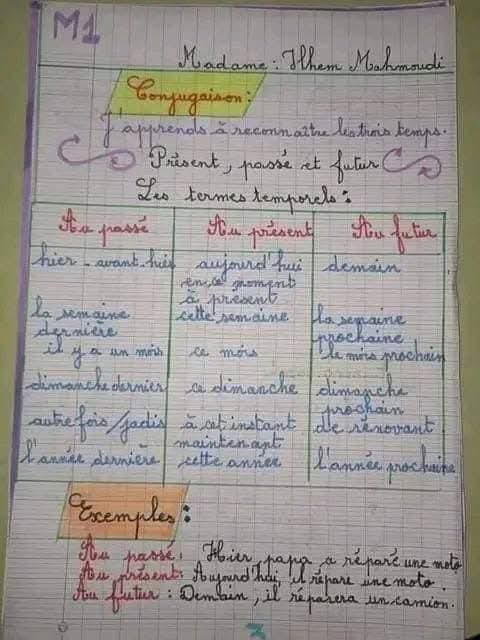 M1
Madame : Ilhem Mahmoudi
Conjugaison :
J'apprends à reconnaître les trois temps.
Présent, passé et futur
Les termes temporels :
Au passé Au présent Au futur
hier - avant-hier aujourd'hui demain
en ce moment
à présent
la semaine cette semaine la semaine
dernière prochaine
il y a un mois ce mois le mois prochain
dimanche dernier ce dimanche dimanche
prochain
autrefois/jadis à cet instant de rénovant
maintenant
l'année dernière cette année l'année prochaine
Exemples :
Au passé : Hier, papa a réparé une moto
Au présent : Aujourd'hui, il répare une moto.
Au futur : Demain, il réparera un camion.
3